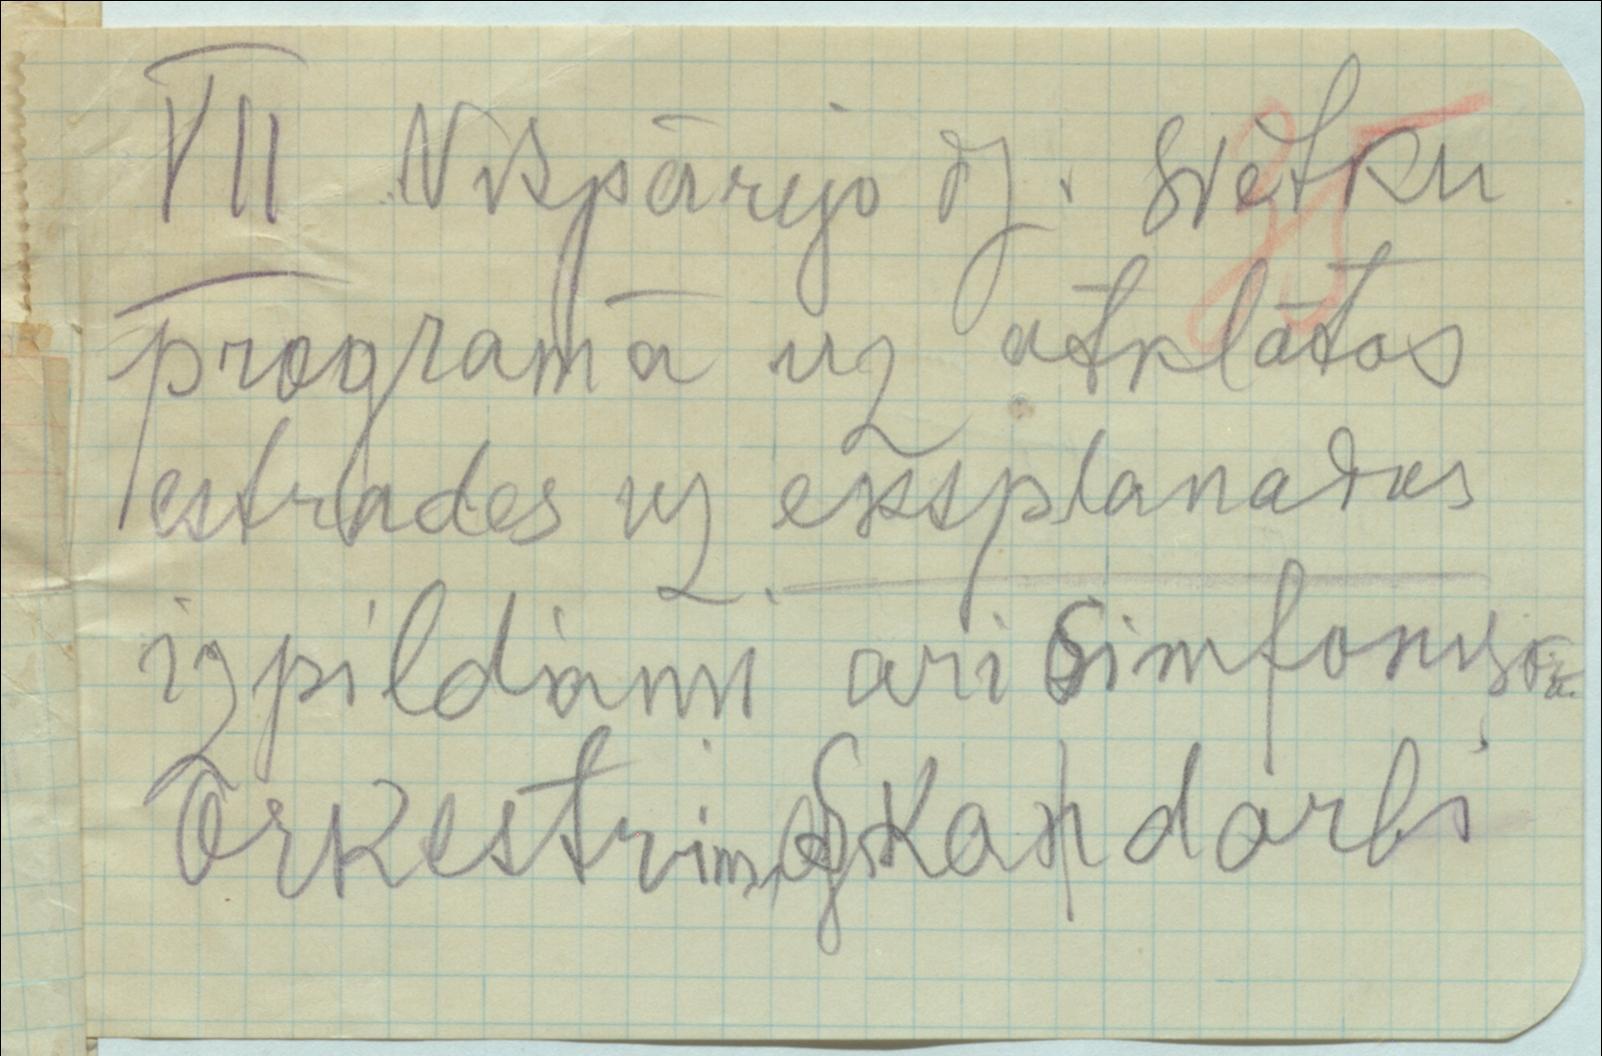 VII Vispārējo dz. svētku
programā uz atklātas
estrades uz esplanādes
izpildāmi arī Simfonijas
Orkestrim, Skaņdarbi
25